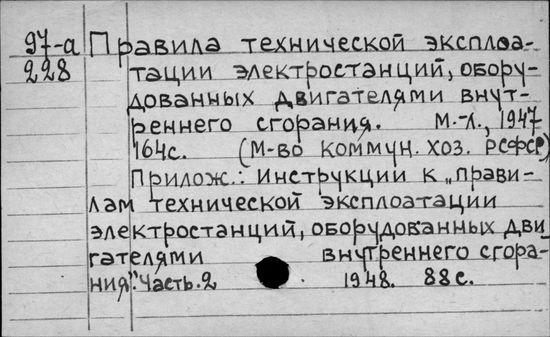 97-а Правила технической эксплоа-
228 тации электростанций, обору-
дованных двигателями внут-
реннего сгорания. М.-Л., 1947
164с. (М-во коммун. хоз. РСФСР)
Прилож.: Инструкции к „прави-
лам технической эксплоатации
электростанций, оборудованных дви
гателями внутреннего сгора-
ния". Часть. 2 1948. 88 с.